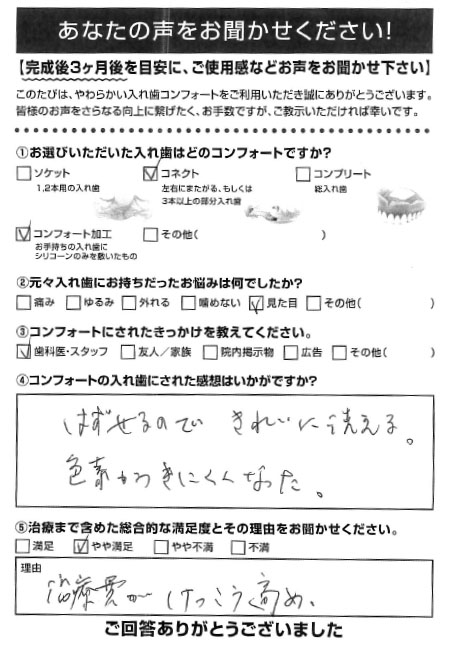 あなたの声をお聞かせください!
【完成後3ヶ月後を目安に、ご使用感などお声をお聞かせ下さい】
このたびは、やわらかい入れ歯コンフォートをご利用いただき誠にありがとうございます。
皆様のお声をさらなる向上に繋げたく、お手数ですが、ご教示いただければ幸いです。
①お選びいただいた入れ歯はどのコンフォートですか?
□ソケット ☑コネクト □コンプリート
1,2本用の入れ歯 左右にまたがる、もしくは 総入れ歯
3本以上の部分入れ歯
☑コンフォート加工 □その他( )
お手持ちの入れ歯に
シリコーンのみを敷いたもの
②元々入れ歯にお持ちだったお悩みは何でしたか?
□痛み □ゆるみ □外れる □噛めない ☑見た目 □その他( )
③コンフォートにされたきっかけを教えてください。
☑歯科医・スタッフ □友人/家族 □院内掲示物 □広告 □その他( )
④コンフォートの入れ歯にされた感想はいかがですか?
はずせるので きれいに洗える。
色素がつきにくくなった。
⑤治療まで含めた総合的な満足度とその理由をお聞かせください。
□満足 ☑やや満足 □やや不満 □不満
理由
治療費が けっこう高め、
ご回答ありがとうございました